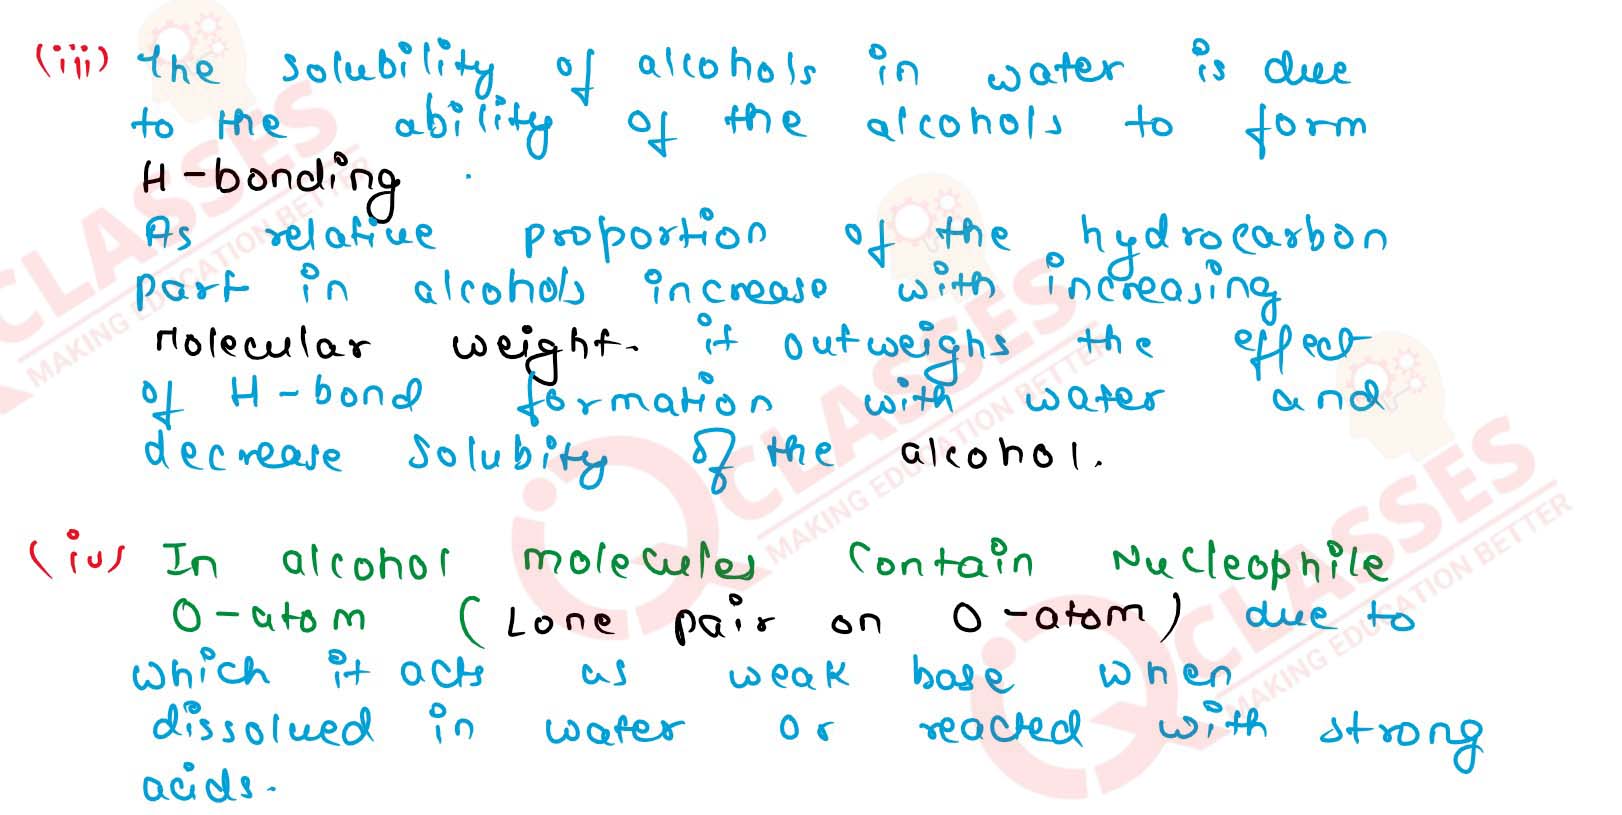 (iii) The solubility of alcohols in water is due
to the ability of the alcohols to form
H-bonding .
As relative proportion of the hydrocarbon
part in alcohols increase with increasing
Molecular weight. it outweighs the effect
of H-bond formation with water and
decrease solubity of the alcohol.
(iv) In alcohol molecules contain Nucleophile
O-atom (Lone pair on O-atom) due to
which it acts as weak base when
dissolved in water or reacted with strong
acids.
CLASSES
MAKING EDUCATION BETTER
CLASSES
MAKING EDUCATION BETTER
CLASSES
MAKING EDUCATION BETTER